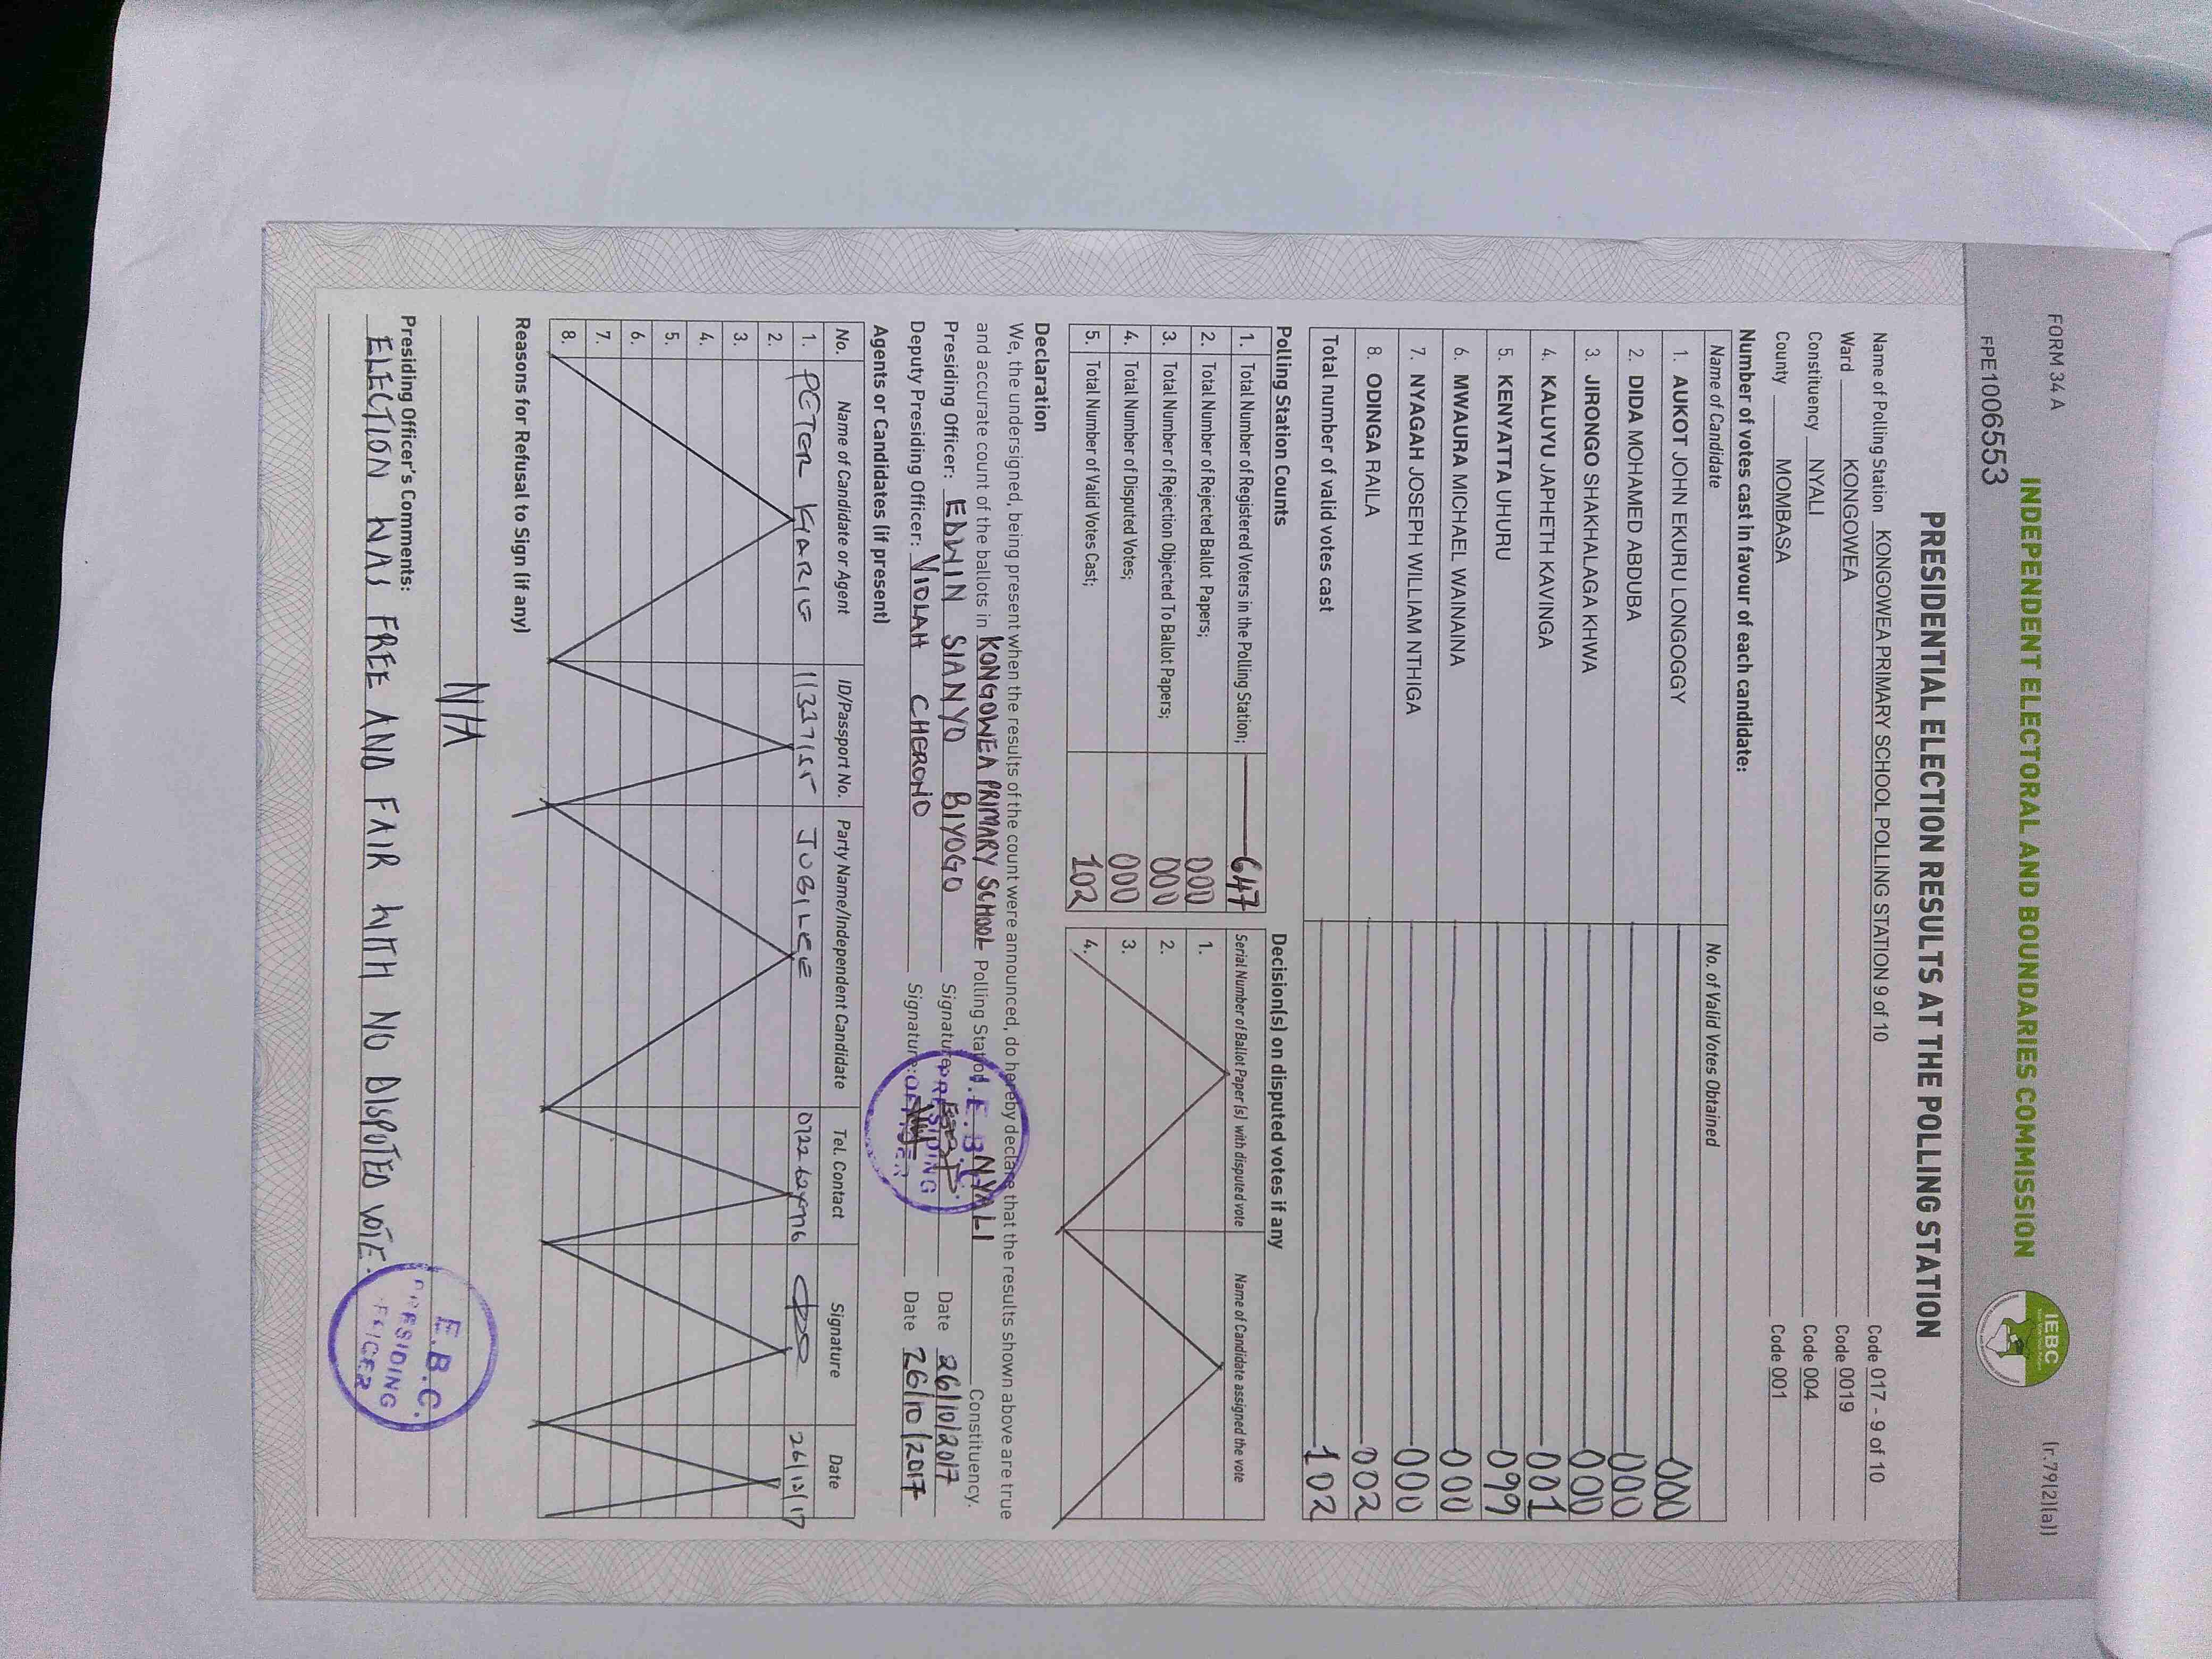 FORM 34 A
(r.79(2)(a))
INDEPENDENT ELECTORAL AND BOUNDARIES COMMISSION
IEBC
FPE1006553
PRESIDENTIAL ELECTION RESULTS AT THE POLLING STATION
Name of Polling Station KONGOWEA PRIMARY SCHOOL POLLING STATION 9 of 10 Code 017 - 9 of 10
Ward KONGOWEA Code 0019
Constituency NYALI Code 004
County MOMBASA Code 001
Number of votes cast in favour of each candidate:
Name of Candidate No. of Valid Votes Obtained
1. AUKOT JOHN EKURU LONGOGGY 000
2. DIDA MOHAMED ABDUBA 000
3. JIRONGO SHAKHALAGA KHWA 000
4. KALUYU JAPHETH KAVINGA 001
5. KENYATTA UHURU 099
6. MWAURA MICHAEL WAINAINA 000
7. NYAGAH JOSEPH WILLIAM NTHIGA 000
8. ODINGA RAILA 002
Total number of valid votes cast 102
Polling Station Counts
1. Total Number of Registered Voters in the Polling Station; 647
2. Total Number of Rejected Ballot Papers; 000
3. Total Number of Rejection Objected To Ballot Papers; 000
4. Total Number of Disputed Votes; 000
5. Total Number of Valid Votes Cast; 102
Decision(s) on disputed votes if any
Serial Number of Ballot Paper (s) with disputed vote Name of Candidate assigned the vote
1.
2.
3.
4.
Declaration
We, the undersigned, being present when the results of the count were announced, do hereby declare that the results shown above are true
and accurate count of the ballots in KONGOWEA PRIMARY SCHOOL Polling Station NYALI Constituency.
Presiding Officer: EDWIN SIANYO BIYOGO Signature Date 26/10/2017
Deputy Presiding Officer: VIOLAH CHERONO Signature: Date 26/10/2017
I.E.B.C.
PRESIDING
OFFICER
Agents or Candidates (if present)
No. Name of Candidate or Agent ID/Passport No. Party Name/Independent Candidate Tel. Contact Signature Date
1. PETER KARIU JUBILEE 26/10/17
2.
3.
4.
5.
6.
7.
8.
Reasons for Refusal to Sign (if any)
N/A
Presiding Officer's Comments:
ELECTION WAS FREE AND FAIR WITH NO DISPUTED VOTE.
E.B.C.
PRESIDING
OFFICER